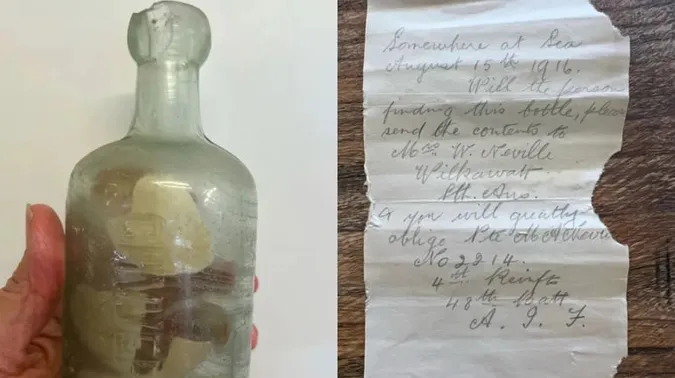 Somewhere at Sea
August 15th 1916.
Will the person
finding this bottle, please
send the contents to
Mrs W. Neville
Wilkawatt
Sth. Aus.
& you will greatly
oblige Pte M A Neville
No 2214.
4th Reinfts
48th Batt
A. I. F.